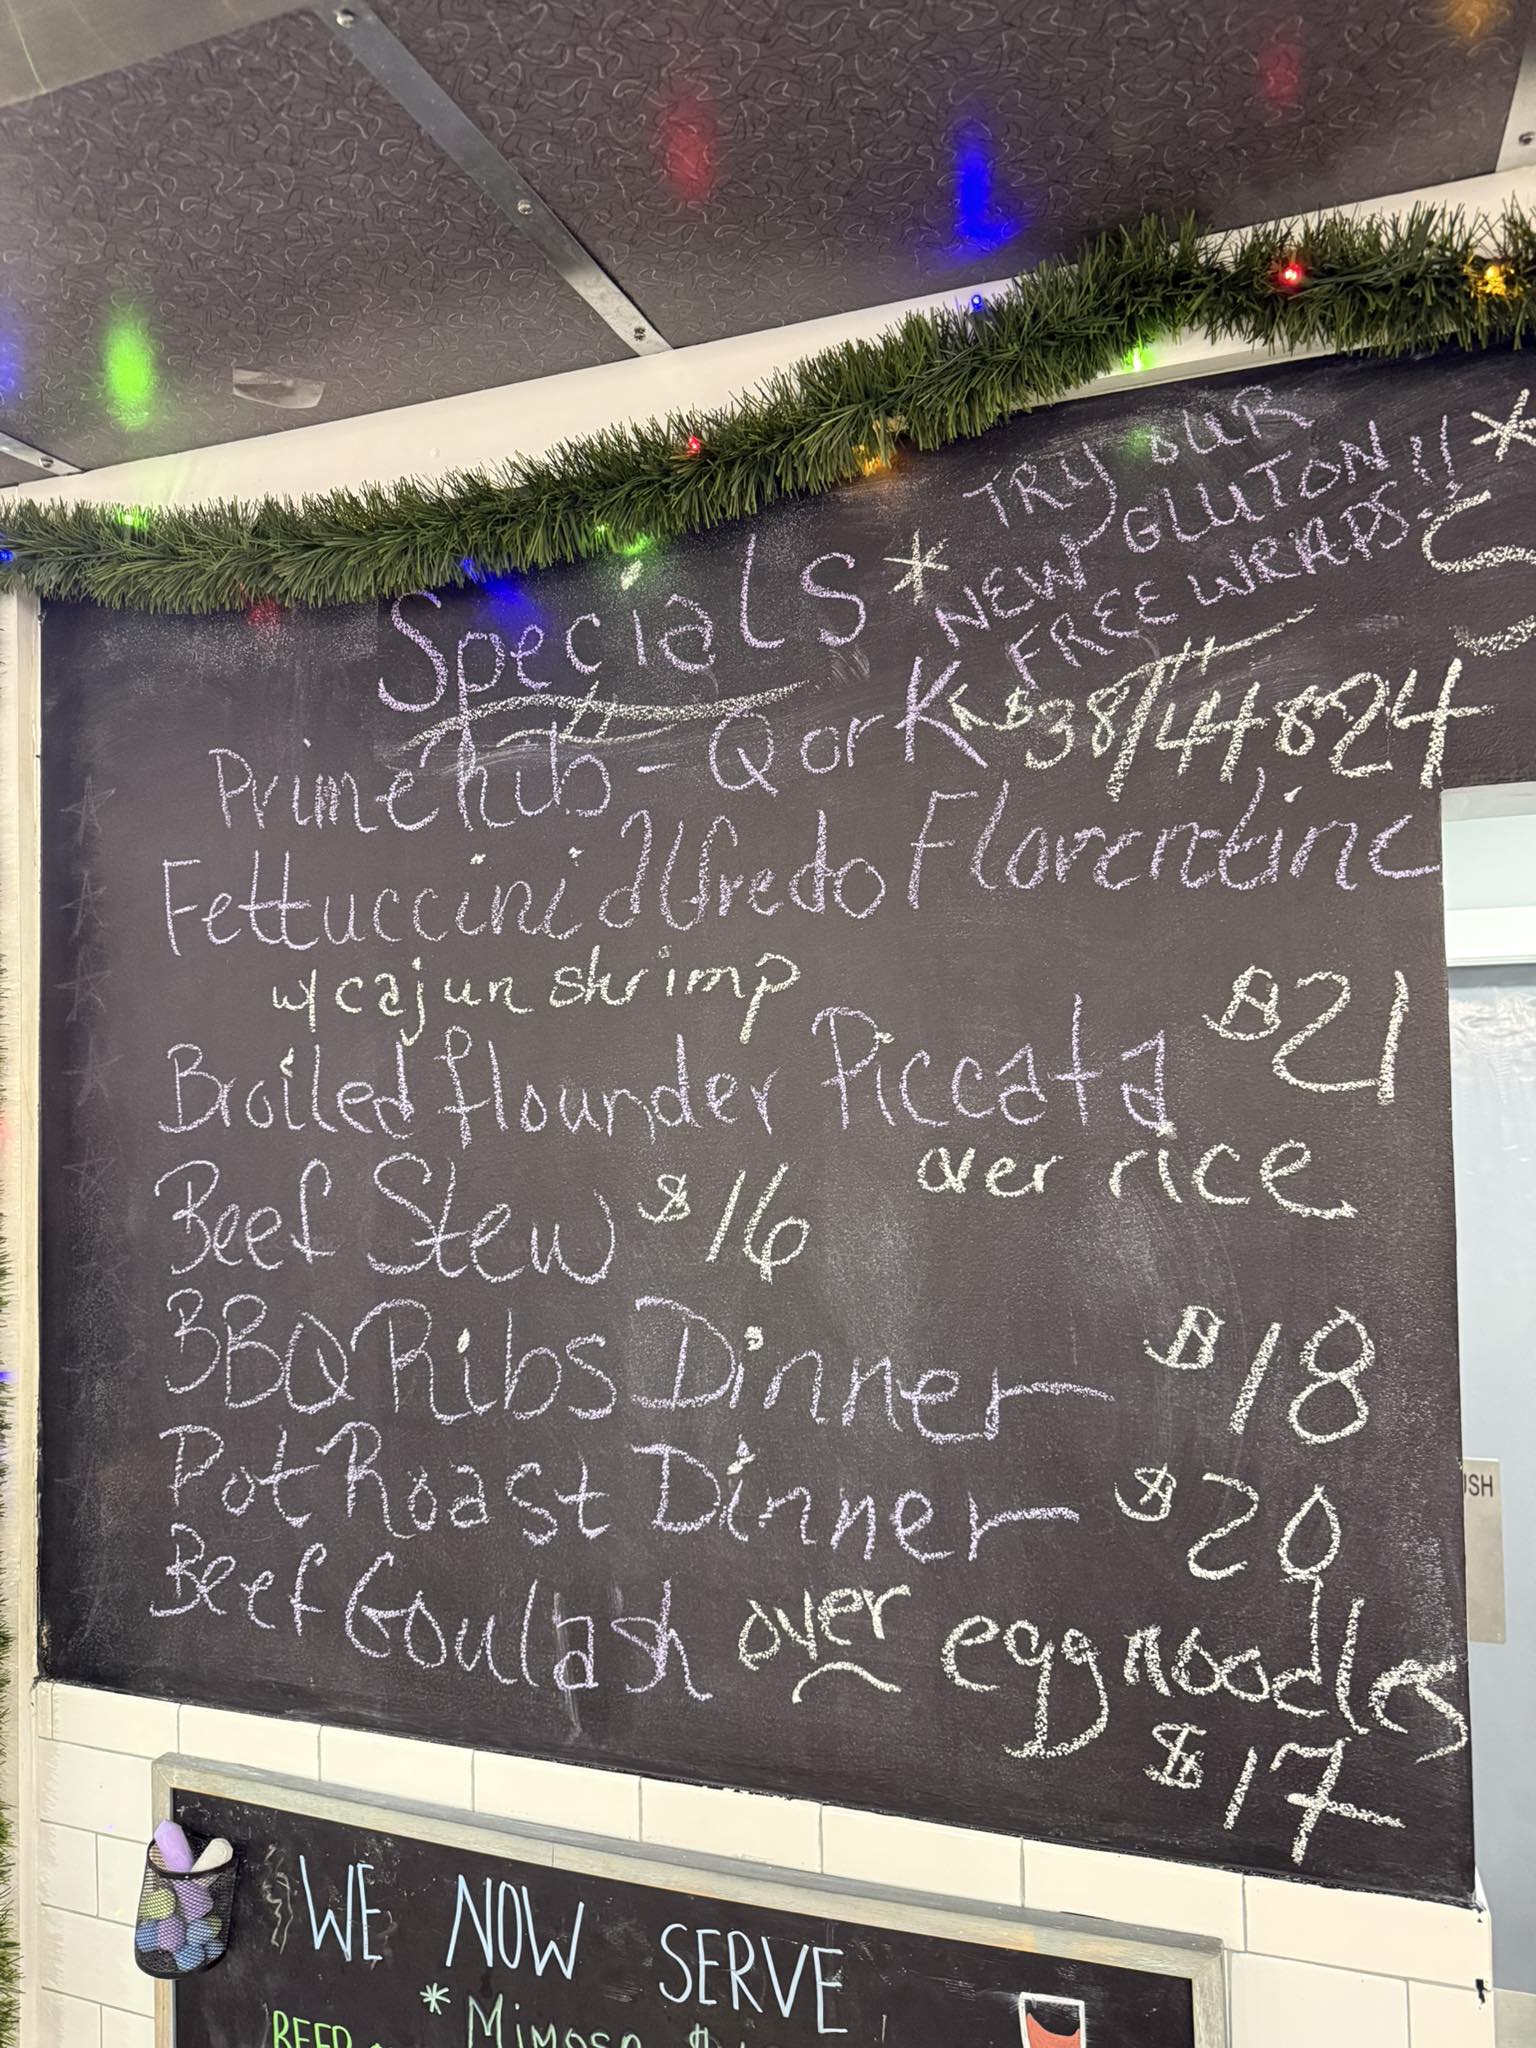 Specials *
TRY OUR
NEW GLUTON!!
FREE WRAPS!
*
Prime rib - Q or K $38/44 $24
Fettuccini Alfredo Florentine
w/ cajun shrimp $21
Broiled flounder Piccata
over rice
Beef Stew $16
BBQ Ribs Dinner $18
Pot Roast Dinner $20
Beef Goulash over egg noodles
$17
USH
WE NOW SERVE
* Mimosa
BEER